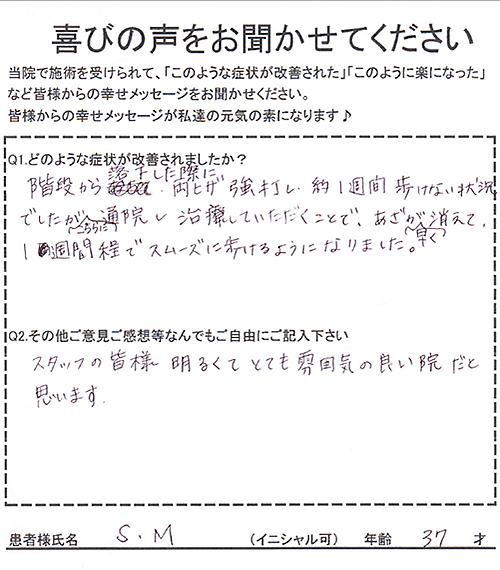 喜びの声をお聞かせてください
当院で施術を受けられて、「このような症状が改善された」「このように楽になった」
など皆様からの幸せメッセージをお聞かせください。
皆様からの幸せメッセージが私達の元気の素になります♪
Q1.どのような症状が改善されましたか？
落下した際に
階段から 両ヒザ 強打し、約1週間 歩けない状況
でしたが、通院し 治療していただくことで、あざが消えて、
こちらに
早く
1週間程でスムーズに歩けるようになりました。
Q2.その他ご意見ご感想等なんでもご自由にご記入下さい
スタッフの皆様 明るくて とても 雰囲気の良い院だと
思います。
患者様氏名 S.M （イニシャル可） 年齢 37 才